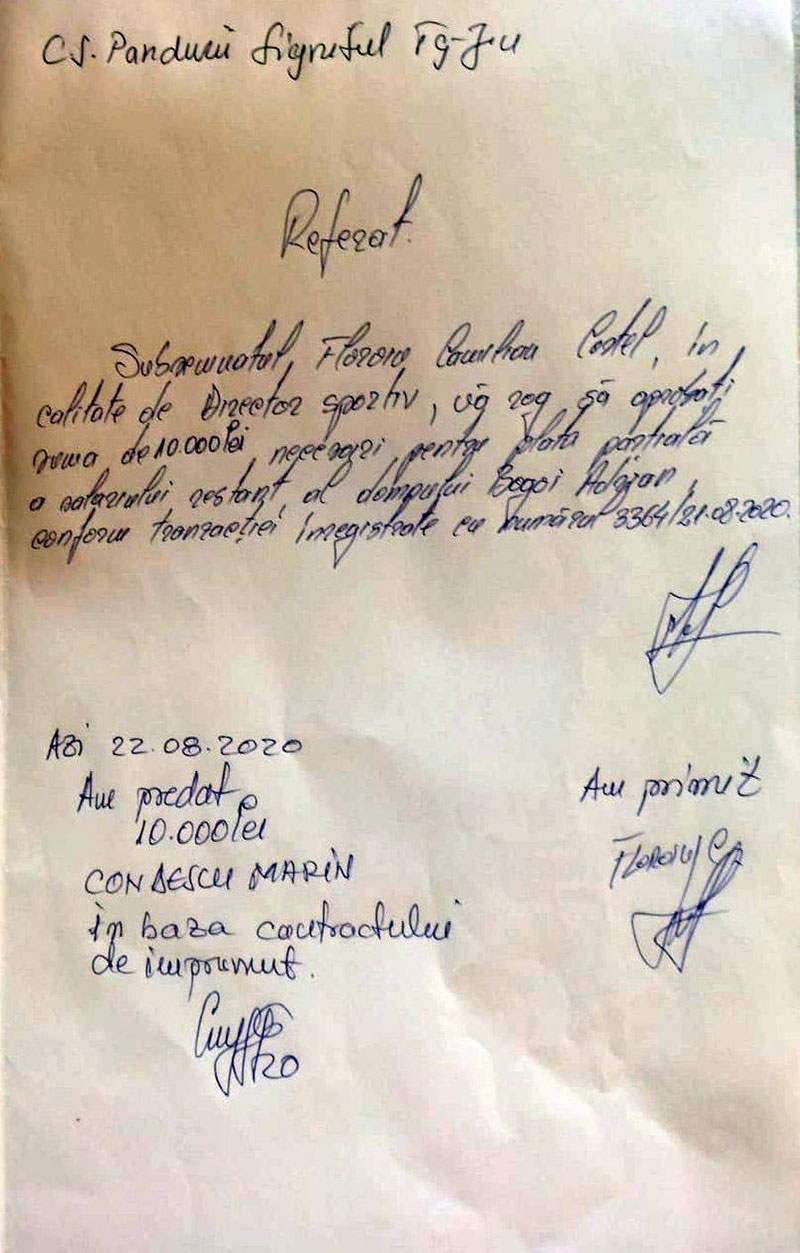 C.S. Pandurii Lignitul Tg-Jiu
Referat.
Subsemnatul, Floroiu Costel, în
calitate de Director sportiv, vă rog să aprobați
suma de 10.000 lei, necesari pentru plata parțială
a salariului restant, al domnului Bogoi Adrian,
conform tranzacției înregistrate cu numărul 3364/21.08.2020.
Azi 22.08.2020
Am predat
10.000 lei
CONDESCU MARIN
în baza contractului
de imprumut.
Am primit
FLOROIU C